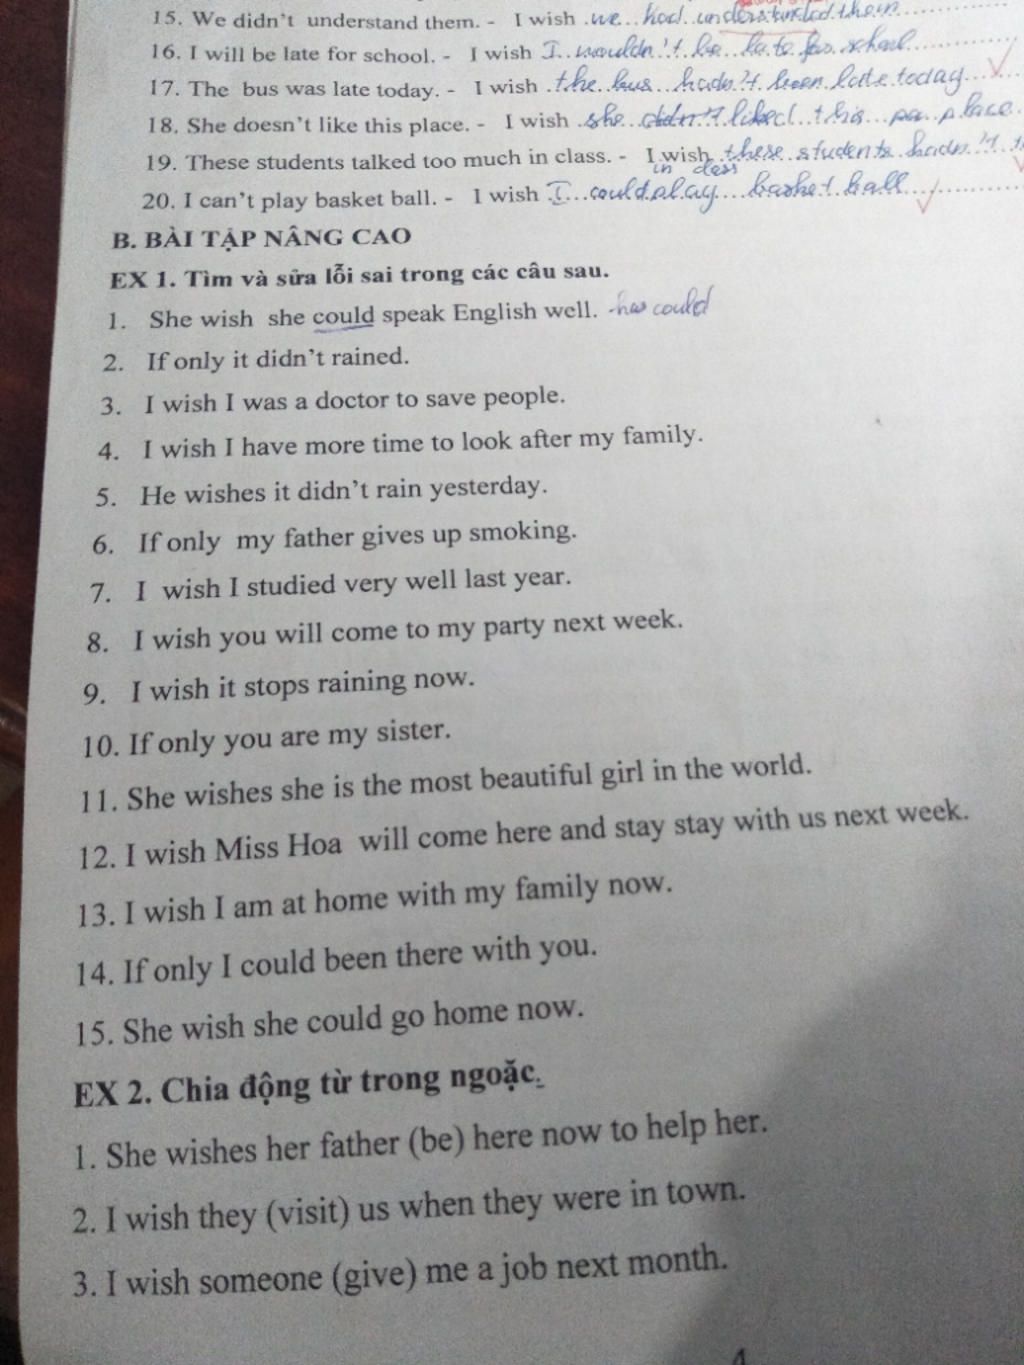 15. We didn't understand them. - I wish we had understanded them
16. I will be late for school. - I wish I wouldn't be late for school
17. The bus was late today. - I wish the bus hadn't been late today
18. She doesn't like this place. - I wish she didn't liked this place
19. These students talked too much in class. - I wish these students hadn't
in class
20. I can't play basket ball. - I wish I could play basket ball
B. BÀI TẬP NÂNG CAO
EX 1. Tìm và sữa lỗi sai trong các câu sau.
1. She wish she could speak English well. could
2. If only it didn't rained.
3. I wish I was a doctor to save people.
4. I wish I have more time to look after my family.
5. He wishes it didn't rain yesterday.
6. If only my father gives up smoking.
7. I wish I studied very well last year.
8. I wish you will come to my party next week.
9. I wish it stops raining now.
10. If only you are my sister.
11. She wishes she is the most beautiful girl in the world.
12. I wish Miss Hoa will come here and stay stay with us next week.
13. I wish I am at home with my family now.
14. If only I could been there with you.
15. She wish she could go home now.
EX 2. Chia động từ trong ngoặc.
1. She wishes her father (be) here now to help her.
2. I wish they (visit) us when they were in town.
3. I wish someone (give) me a job next month.